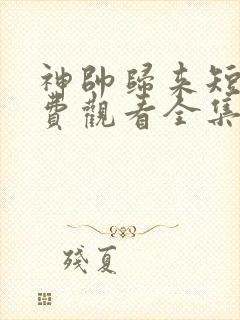 神帥歸來短
費觀看全集
殘夏